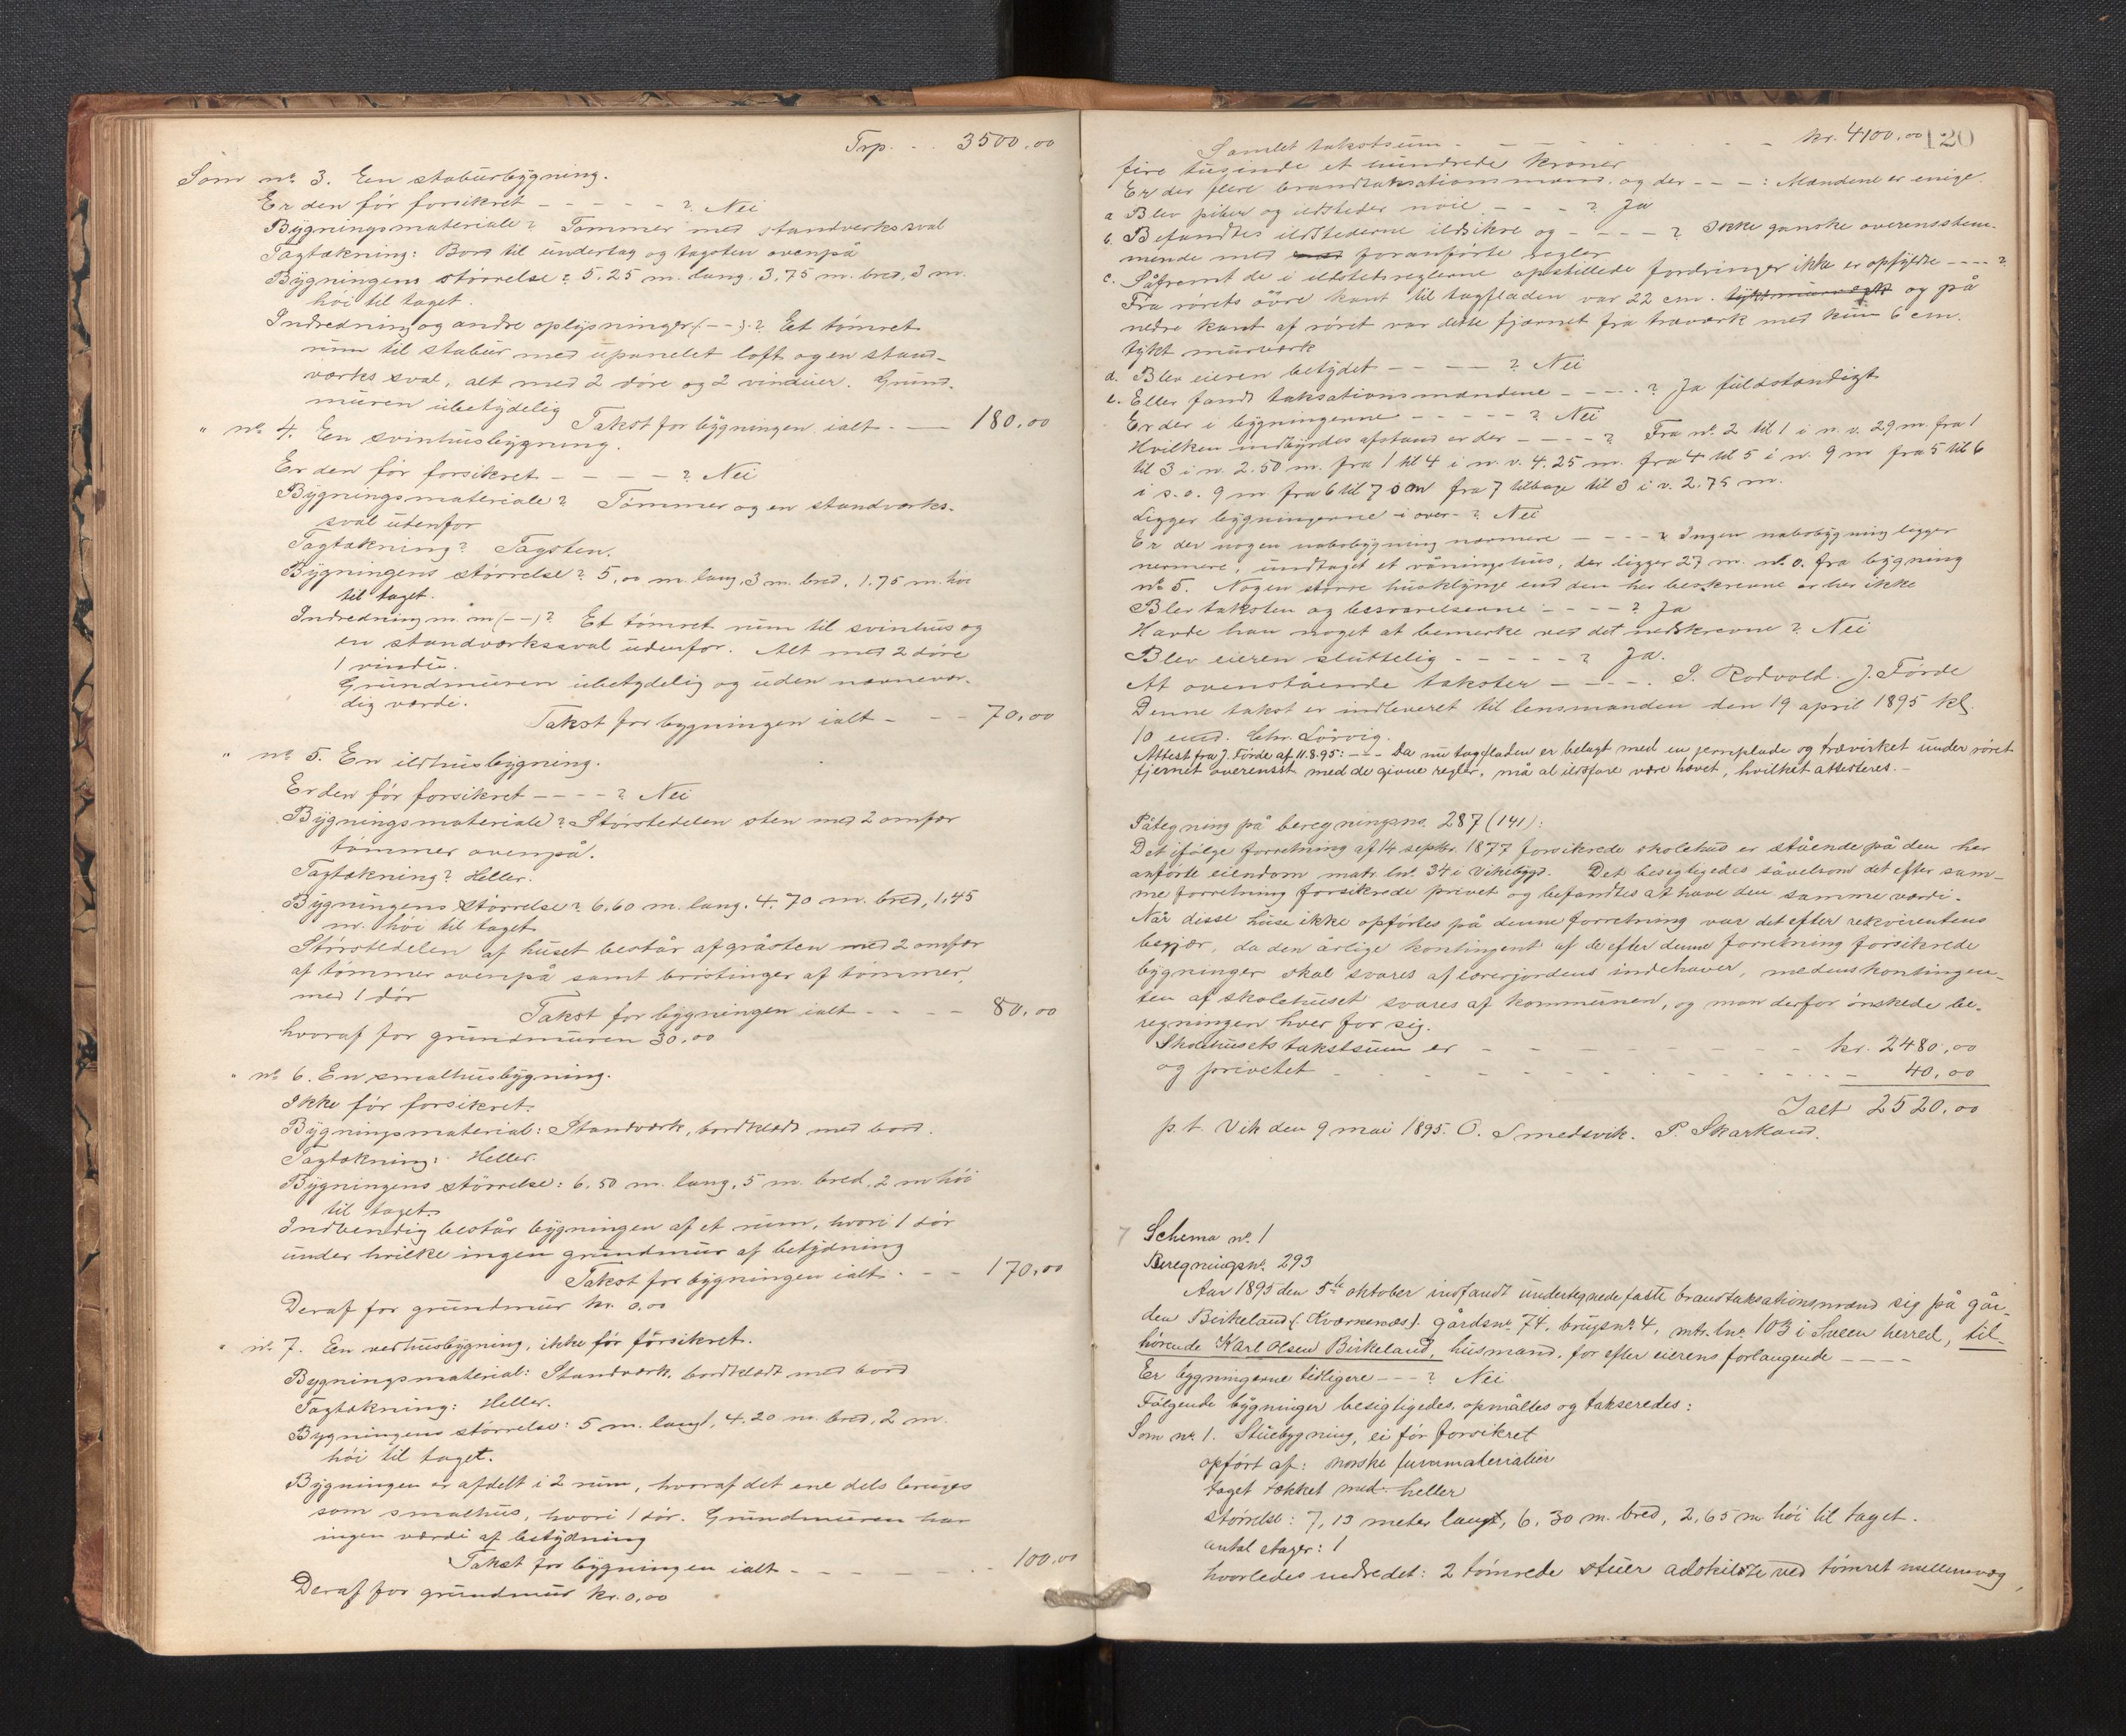 Trp. . . 3500,00
Som no. 3. En stabursbygning.
Er den før forsikret - - - - - ? Nei
Bygningsmateriale? Tømmer med standverkssval
Tagtækning: Bord til undertag og tagsten ovenpå
Bygningens størrelse? 5.25 m. lang. 3,75 m. bred, 3 m.
høi til taget.
Indredning og andre oplysninger (- -)? Et tømret
rum til stabur med upanelet loft og en stand-
værks sval, alt med 2 døre og 2 vinduer. Grund-
muren ubetydelig
Takst for bygningen ialt - — 180,00
" no. 4. En svinhusbygning.
Er den før forsikret - - - - ? Nei
Bygningsmateriale? Tømmer og en standværks-
sval utenfor
Tagtækning? Tagsten.
Bygningens størrelse? 5,00 m. lang, 3 m. bred, 1.75 m. høi
til taget.
Indredning m.m (- -)? Et tømret rum til svinhus og
en standværkssval udenfor. Alt med 2 døre
1 vindu.
Grundmuren ubetydelig og uden nævnevær-
dig værdi.
Takst for bygningen ialt - - - 70,00
" no. 5. En ildhusbygning.
Er den før forsikret - - - - ? Nei
Bygningsmateriale? Størstedelen sten med 2 omfar
tømmer ovenpå.
Tagtækning? Heller.
Bygningens størrelse? 6,60 m. lang. 4.70 m. bred, 1,45
m. høi til taget
Størstedelen af huset består af gråsten med 2 omfar
af tømmer ovenpå samt bröstinger af tømmer,
med 1 dør
Takst for bygningen ialt - - - - 80,00
hvoraf for grundmuren 30,00
" no. 6. En smalhusbygning.
Ikke før forsikret.
Bygningsmaterial: Standværk, bordklædt med bord.
Tagtækning: Heller.
Bygningens størrelse: 6,50 m. lang, 5 m. bred, 2 m høi
til taget.
Indvendig består bygningen af et rum, hvori 1 dør
under hvilke ingen grundmur af betydning
Takst for bygningen ialt. - - 170,00
Deraf for grundmur kr. 0,00
" no. 7. En vedhusbygning, ikke før forsikret.
Bygningsmaterial: Standværk, bordklædt med bord
Tagtækning: Heller.
Bygningens størrelse: 5 m. lang, 4,20 m. bred, 2 m.
høi til taget.
Bygningen er afdelt i 2 rum, hvoraf det ene dels bruges
som smalhus, hvori 1 dør. Grundmuren har
ingen værdi af betydning
Takst for bygningen ialt - - - - - 100,00
Deraf for grundmur kr. 0,00
120
Samlet takstsum - - - - - - - kr. 4100,00
fire tusinde et hundrede kroner
Er der flere brandtaksationsmænd og der - - - : Mændene er enige
a Blev piber og ildsteder nøie - - - ? Ja
b. Befandtes ildstederne ildsikre og - - - - ? Ikke ganske overensstem-
mende med foranførte regler
c. Såfremt de i ildstedsreglerne opstillede fordringer ikke er opfyldte - - - - ?
Fra rørets övre kant til tagfladen var 22 cm. og på
nedre kant af røret var dette fjærnet fra træværk med kun 6 cm.
tykt murværk
d. Blev eieren betydet - - - - ? Nei
e. Eller fandt taksationsmændene - - - - ? Ja fuldstændigt
Er der i bygningerne - - - - - ? Nei
Hvilken indbyrdes afstand er der - - - - ? Fra no. 2 til 1 i n. v. 29 m. fra 1
til 3 i n. 2.50 m. fra 1 til 4 i n. v. 4.25 m. fra 4 til 5 i n. 9 m fra 5 til 6
i s. o. 9 m. fra 6 til 7 0 cm fra 7 tilbage til 3 i v. 2.75 m.
Ligger bygningerne i over- ? Nei
Er der nogen nabobygning nærmere - - - - ? Ingen nabobygning ligger
nærmere, undtaget et våningshus, der ligger 27 m. n. o. fra bygning
no. 5. Nogen større husklynge end den her beskrevne er her ikke
Blev taksten og besvarelserne - - - - ? Ja
Havde han noget at bemerke ved det nedskrevne ? Nei
Blev eieren sluttelig - - - - - ? Ja.
At ovenstående takster - - - - . S. Rodvold. J. Førde
Denne takst er indleveret til lensmanden den 19 april 1895 kl.
10 emd. Chr. Lörvig.
Attest fra J. Førde af 11.8.95: - - - Da nu tagfladen er belagt med en jernplade og trævirket under røret
fjernet overensst. med de givne regler, må al ildsfare være hævet, hvilket attesteres. -
Påtegning på beregningsno. 287 (141):
Det ifölge forretning af 14 septbr. 1877 forsikrede skolehus er stående på den her
anførte eiendom matr. lno. 34 i Vikebygd. Det besigtigedes såvelsom det efter sam-
me forretning forsikrede privet og befandtes at have den samme værdi.
Når disse huse ikke opførtes på denne forretning var det efter rekvirentens
begjær, da den årlige kontingent af de efter denne forretning forsikrede
bygninger skal svares af lærerjordens indehaver, medens kontingen-
ten af skolehuset svares af kommunen, og man derfor ønskede be-
regningen hver for sig.
Skolehusets takstsum er - - - - - - - kr. 2480,00
og privetet - - - - - - - - - - - 40,00
Ialt 2520,00
p. t. Vik den 9 mai 1895. O. Smedsvik. P. Skarland.
Schema no. 1
Beregningsno. 293
Aar 1895 den 5te oktober indfandt undertegnede faste brandtaksationsmænd sig på går-
den Birkeland (Kværnenæs). gårdsno. 74, brugsno. 4, mtr. lno. 103 i Sveen herred, til-
hørende Karl Olsen Birkeland, husmand, for efter eierens forlangende - - - -
Er bygningerne tidligere - - - ? Nei
Følgende bygninger besigtigedes, opmåltes og takseredes:
Som no. 1. Stuebygning, ei før forsikret
opført af: norske furumaterialier
taget tækket med: heller
størrelse: 7,13 meter langt, 6,30 m. bred, 2,65 m. høi til taget.
antal etager: 1
hvorledes indredet: 2 tømrede stuer adskilte ved tømret mellemvæg,